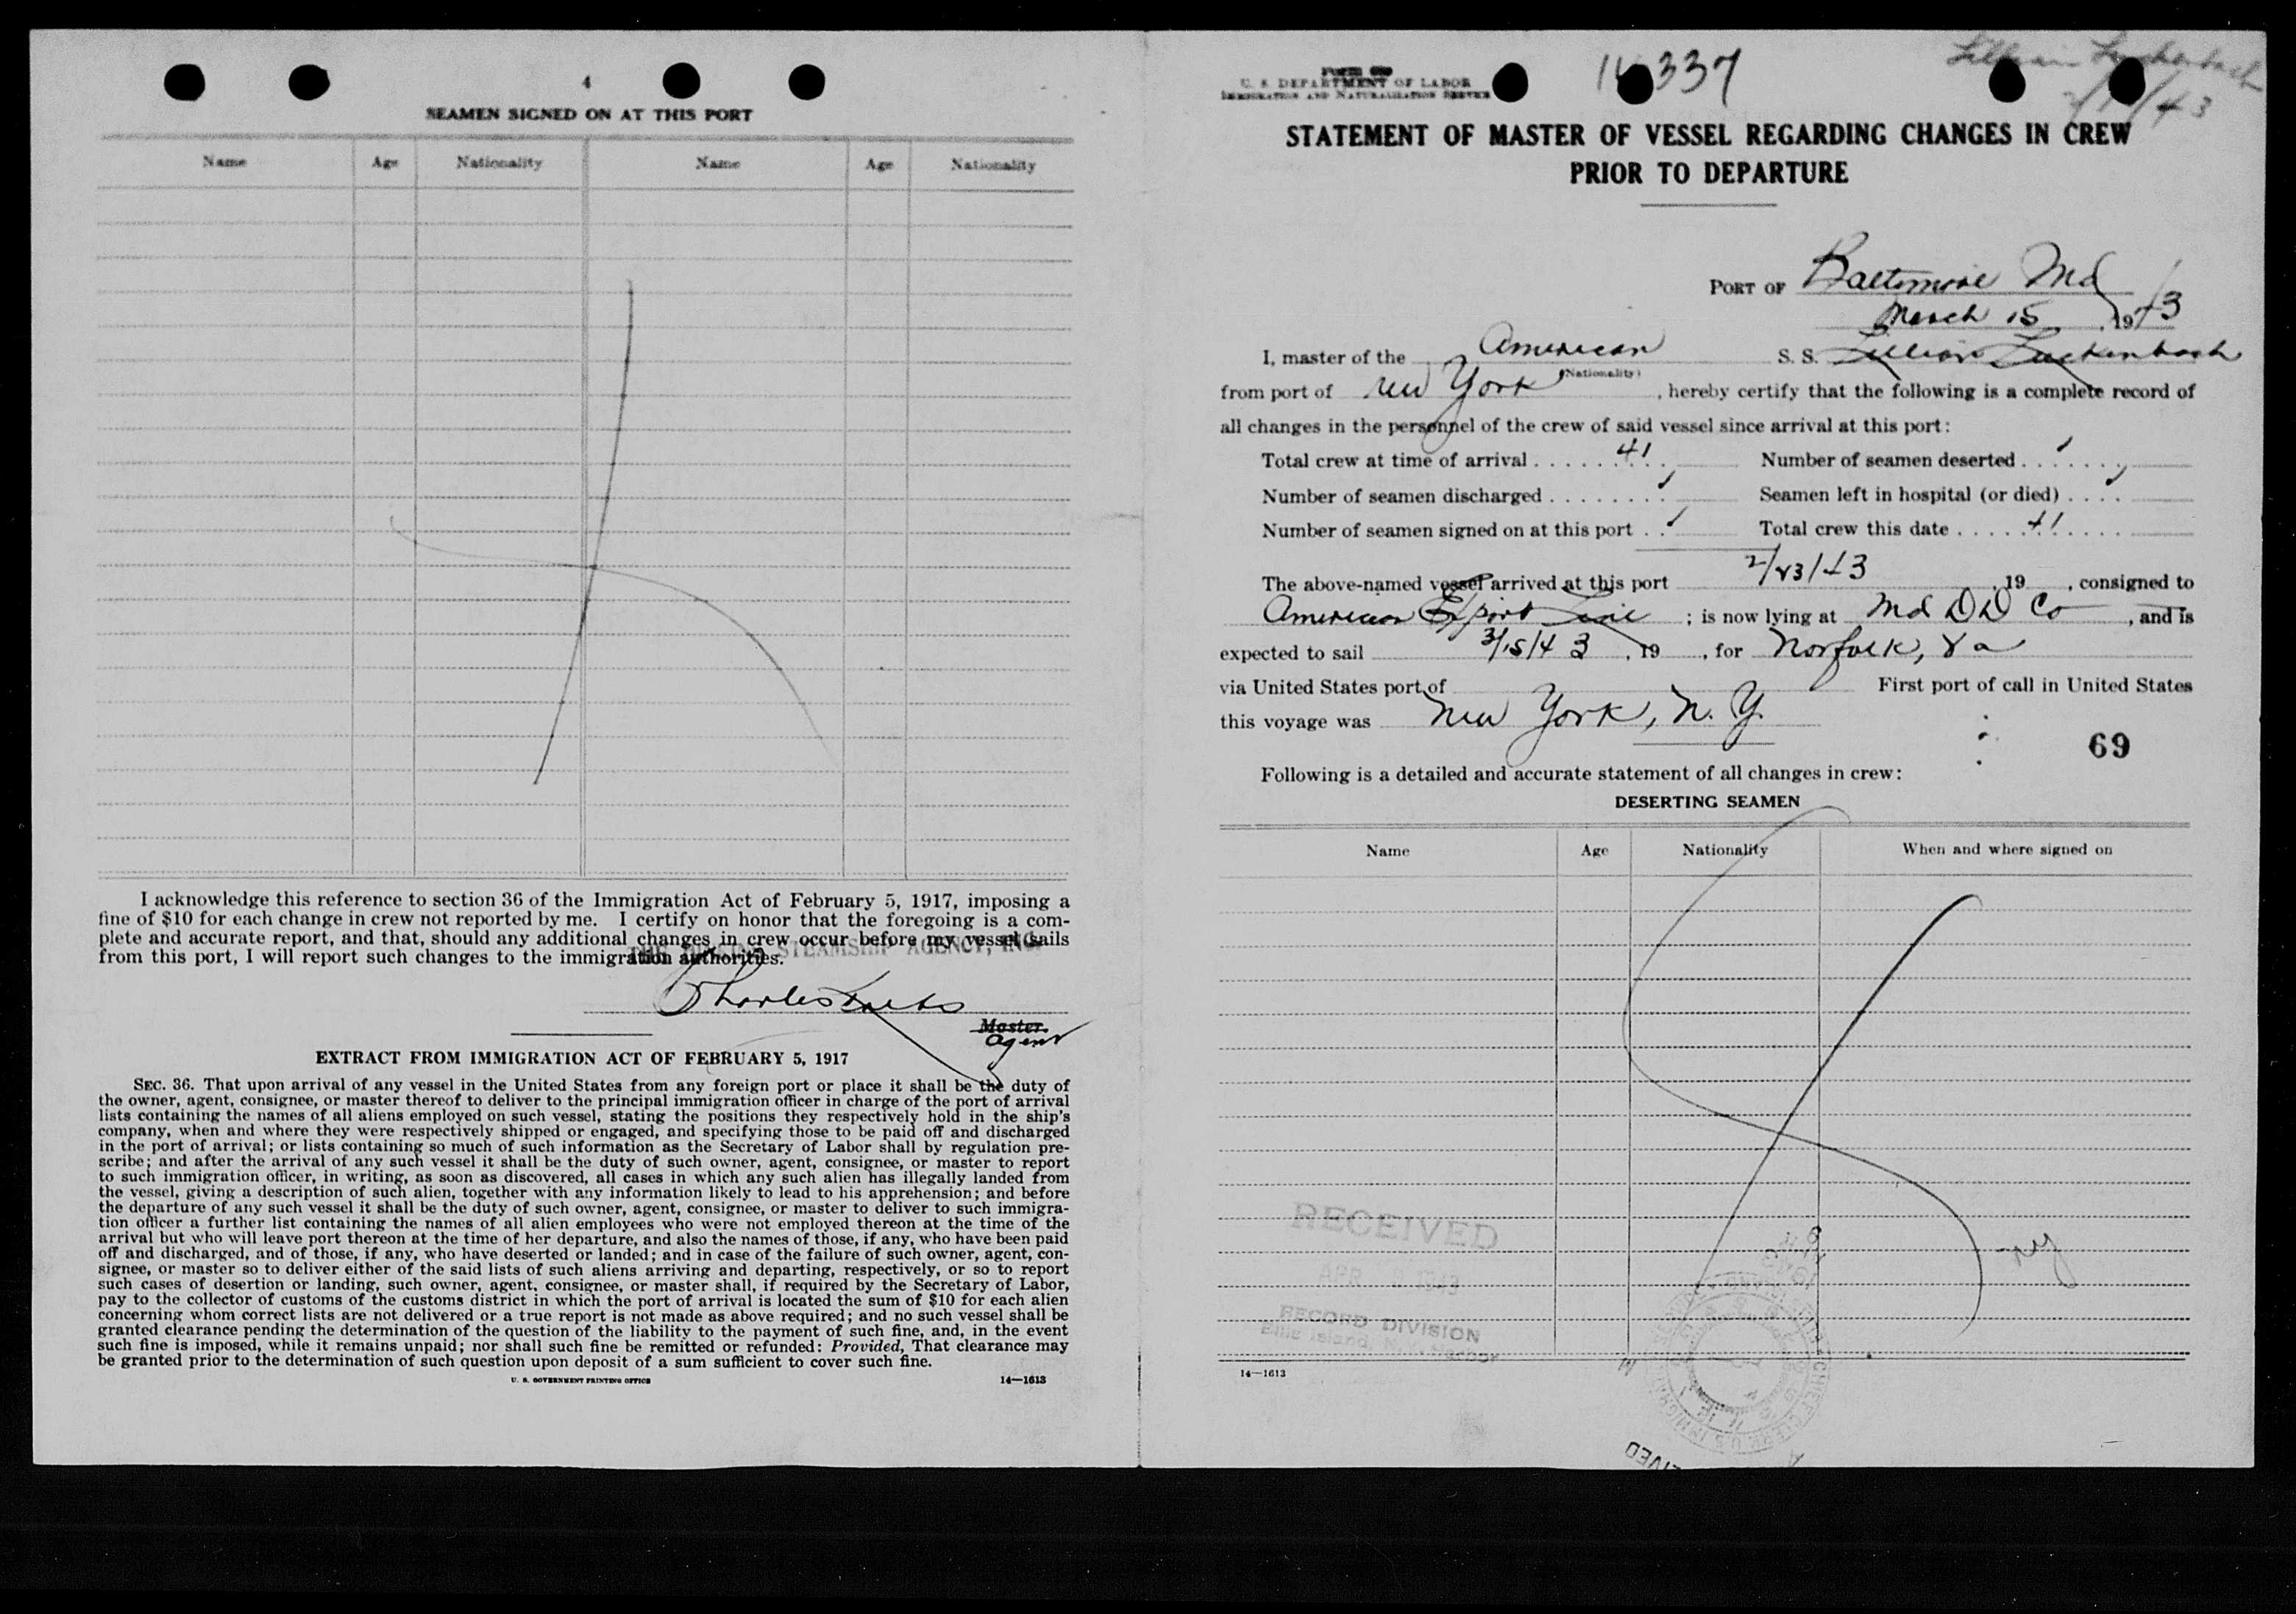 4
SEAMEN SIGNED ON AT THIS PORT
Name Age Nationality Name Age Nationality
I acknowledge this reference to section 36 of the Immigration Act of February 5, 1917, imposing a
fine of $10 for each change in crew not reported by me. I certify on honor that the foregoing is a com-
plete and accurate report, and that, should any additional changes in crew occur before my vessel sails
from this port, I will report such changes to the immigration authorities.
STEAMSHIP AGENCY, INC.
Charles
Master.
Agent
EXTRACT FROM IMMIGRATION ACT OF FEBRUARY 5, 1917
SEC. 36. That upon arrival of any vessel in the United States from any foreign port or place it shall be the duty of
the owner, agent, consignee, or master thereof to deliver to the principal immigration officer in charge of the port of arrival
lists containing the names of all aliens employed on such vessel, stating the positions they respectively hold in the ship's
company, when and where they were respectively shipped or engaged, and specifying those to be paid off and discharged
in the port of arrival; or lists containing so much of such information as the Secretary of Labor shall by regulation pre-
scribe; and after the arrival of any such vessel it shall be the duty of such owner, agent, consignee, or master to report
to such immigration officer, in writing, as soon as discovered, all cases in which any such alien has illegally landed from
the vessel, giving a description of such alien, together with any information likely to lead to his apprehension; and before
the departure of any such vessel it shall be the duty of such owner, agent, consignee, or master to deliver to such immigra-
tion officer a further list containing the names of all alien employees who were not employed thereon at the time of the
arrival but who will leave port thereon at the time of her departure, and also the names of those, if any, who have been paid
off and discharged, and of those, if any, who have deserted or landed; and in case of the failure of such owner, agent, con-
signee, or master so to deliver either of the said lists of such aliens arriving and departing, respectively, or so to report
such cases of desertion or landing, such owner, agent, consignee, or master shall, if required by the Secretary of Labor,
pay to the collector of customs of the customs district in which the port of arrival is located the sum of $10 for each alien
concerning whom correct lists are not delivered or a true report is not made as above required; and no such vessel shall be
granted clearance pending the determination of the question of the liability to the payment of such fine, and, in the event
such fine is imposed, while it remains unpaid; nor shall such fine be remitted or refunded: Provided, That clearance may
be granted prior to the determination of such question upon deposit of a sum sufficient to cover such fine.
U. S. GOVERNMENT PRINTING OFFICE 14—1613
Form
U. S. DEPARTMENT OF LABOR
IMMIGRATION AND NATURALIZATION SERVICE
337
Lillian Luckenbach
STATEMENT OF MASTER OF VESSEL REGARDING CHANGES IN CREW
PRIOR TO DEPARTURE
PORT OF Baltimore Md
March 15, 1943
I, master of the American S. S. Lillian Luckenbach
(Nationality)
from port of New York, hereby certify that the following is a complete record of
all changes in the personnel of the crew of said vessel since arrival at this port:
Total crew at time of arrival 41 Number of seamen deserted
Number of seamen discharged Seamen left in hospital (or died)
Number of seamen signed on at this port Total crew this date 41
The above-named vessel arrived at this port 2/23/43, 19 , consigned to
American Export Line ; is now lying at Md D D Co , and is
expected to sail 3/15/43, 19 , for Norfolk, Va
via United States port of First port of call in United States
this voyage was New York, N. Y.
69
Following is a detailed and accurate statement of all changes in crew:
DESERTING SEAMEN
Name Age Nationality When and where signed on
RECEIVED
APR 1943
RECORD DIVISION
Ellis Island, N.Y. Harbor
ny
14—1613